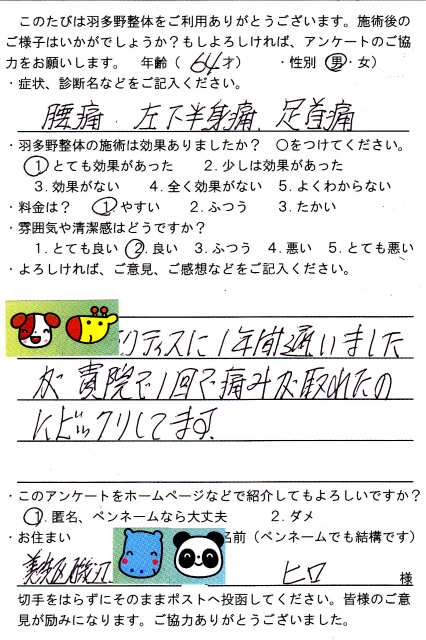 このたびは羽多野整体をご利用ありがとうございます。施術後の
ご様子はいかがでしょうか?もしよろしければ、アンケートのご協
力をお願いします。　年齢（ 64 才）　・性別（男・女）
・症状、診断名などをご記入ください。
腰痛．左下半身痛、足首痛
・羽多野整体の施術は効果ありましたか?　○をつけてください。
1．とても効果があった　2．少しは効果があった
3．効果がない　4．全く効果がない　5．よくわからない
・料金は?　1．やすい　2．ふつう　3．たかい
・雰囲気や清潔感はどうですか?
1．とても良い　2．良い　3．ふつう　4．悪い　5．とても悪い
・よろしければ、ご意見、ご感想などをご記入ください。
クティスに1年間通いました
が 貴院で1回で痛みが取れたの
にビックリしてます。
・このアンケートをホームページなどで紹介してもよろしいですか?
1．匿名、ペンネームなら大丈夫　2．ダメ
・お住まい　名前（ペンネームでも結構です）
美浜区磯辺　ヒロ　様
切手をはらずにそのままポストへ投函してください。皆様のご意
見が励みになります。ご協力ありがとうございました。